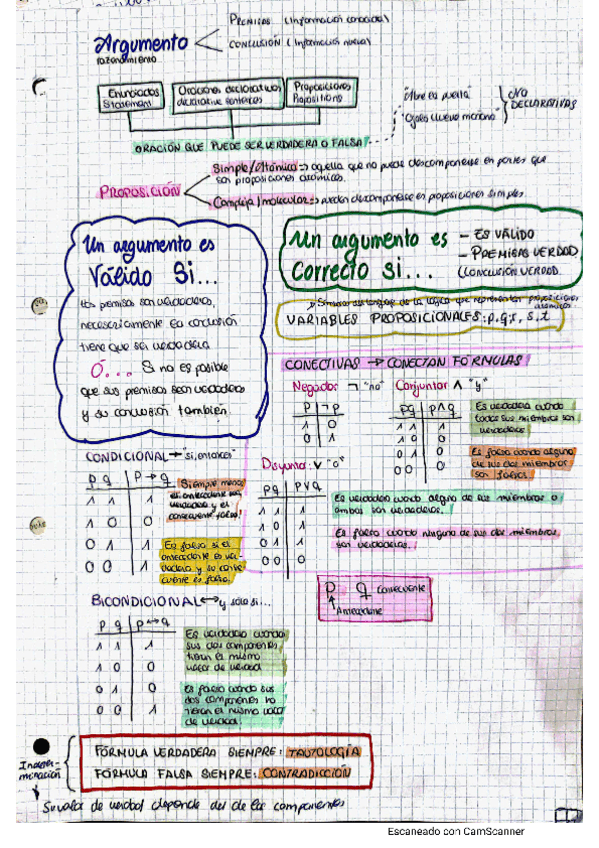 PREMISAS (Información conocida)
Argumento
razonamiento
CONCLUSIÓN (Información nueva)
Enunciados
Statement
Oraciones declarativas
declarative sentences
Proposiciones
Propositions
"Abre la puerta"
"Ojalá llueva mañana"
NO
DECLARATIVAS
ORACIÓN QUE PUEDE SER VERDADERA O FALSA
PROPOSICIÓN
Simple/Atómica => aquella que no puede descomponerse en partes que
son proposiciones atómicas.
Compleja/molecular => pueden descomponerse en proposiciones simples
Un argumento es
Válido Si...
sus premisas son verdaderas,
necesariamente la conclusión
tiene que ser verdadera
Ó... Si no es posible
que sus premisas sean verdaderas
y su conclusión también.
Un argumento es
Correcto Si...
- ES VÁLIDO
- PREMISAS VERDAD
(CONCLUSIÓN VERDAD.
del lenguaje de la lógica que representan proposiciones
atómicas.
VARIABLES PROPOSICIONALES: p, q, r, s, t
CONECTIVAS → CONECTAN FÓRMULAS
Negador ¬ "no"
p ¬p
1 0
0 1
Conjuntor ∧ "y"
p q p∧q
1 1 1
0 1 0
1 0 0
0 0 0
Es verdadera cuando
todos sus miembros son
verdaderos
Es falsa cuando alguno
de sus dos miembros
son falsos.
CONDICIONAL → "si, entonces"
p q p → q
1 1 1
1 0 0
0 1 1
0 0 1
Siempre menos
el antecedente sea
verdadero y el
consecuente falso!
Es falso si el
antecedente es ver-
dadero y su conse-
cuente es falso.
Disyuntor ∨ "o"
p q p∨q
1 1 1
0 1 1
1 0 1
0 0 0
Es verdadero cuando alguno de sus miembros o
ambos son verdaderos.
Es falso cuando ninguno de sus dos miembros
son verdaderos.
p q Consecuente
Antecedente
BICONDICIONAL ↔ y sólo si...
p q p ↔ q
1 1 1
1 0 0
0 1 0
0 0 1
Es verdadero cuando
sus dos componentes
tienen el mismo
valor de verdad
Es falso cuando sus
dos componentes no
tienen el mismo valor
de verdad!
Indeter-
minación
FÓRMULA VERDADERA SIEMPRE: TAUTOLOGÍA
FÓRMULA FALSA SIEMPRE: CONTRADICCIÓN
Su valor de verdad depende del de los componentes
Escaneado con CamScanner